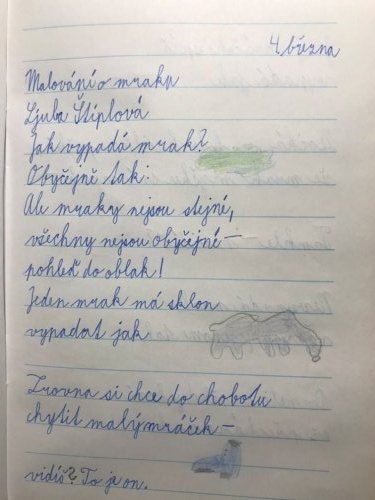 4. března
Malování o mraku
Ljuba Štíplová
Jak vypadá mrak?
Obyčejně tak:
Ale mraky nejsou stejné,
všechny nejsou obyčejné –
pohleď do oblak!
Jeden mrak má sklon
vypadat jak
Zrovna si chce do chobotu
chytit malý mráček –
vidíš? To je on.